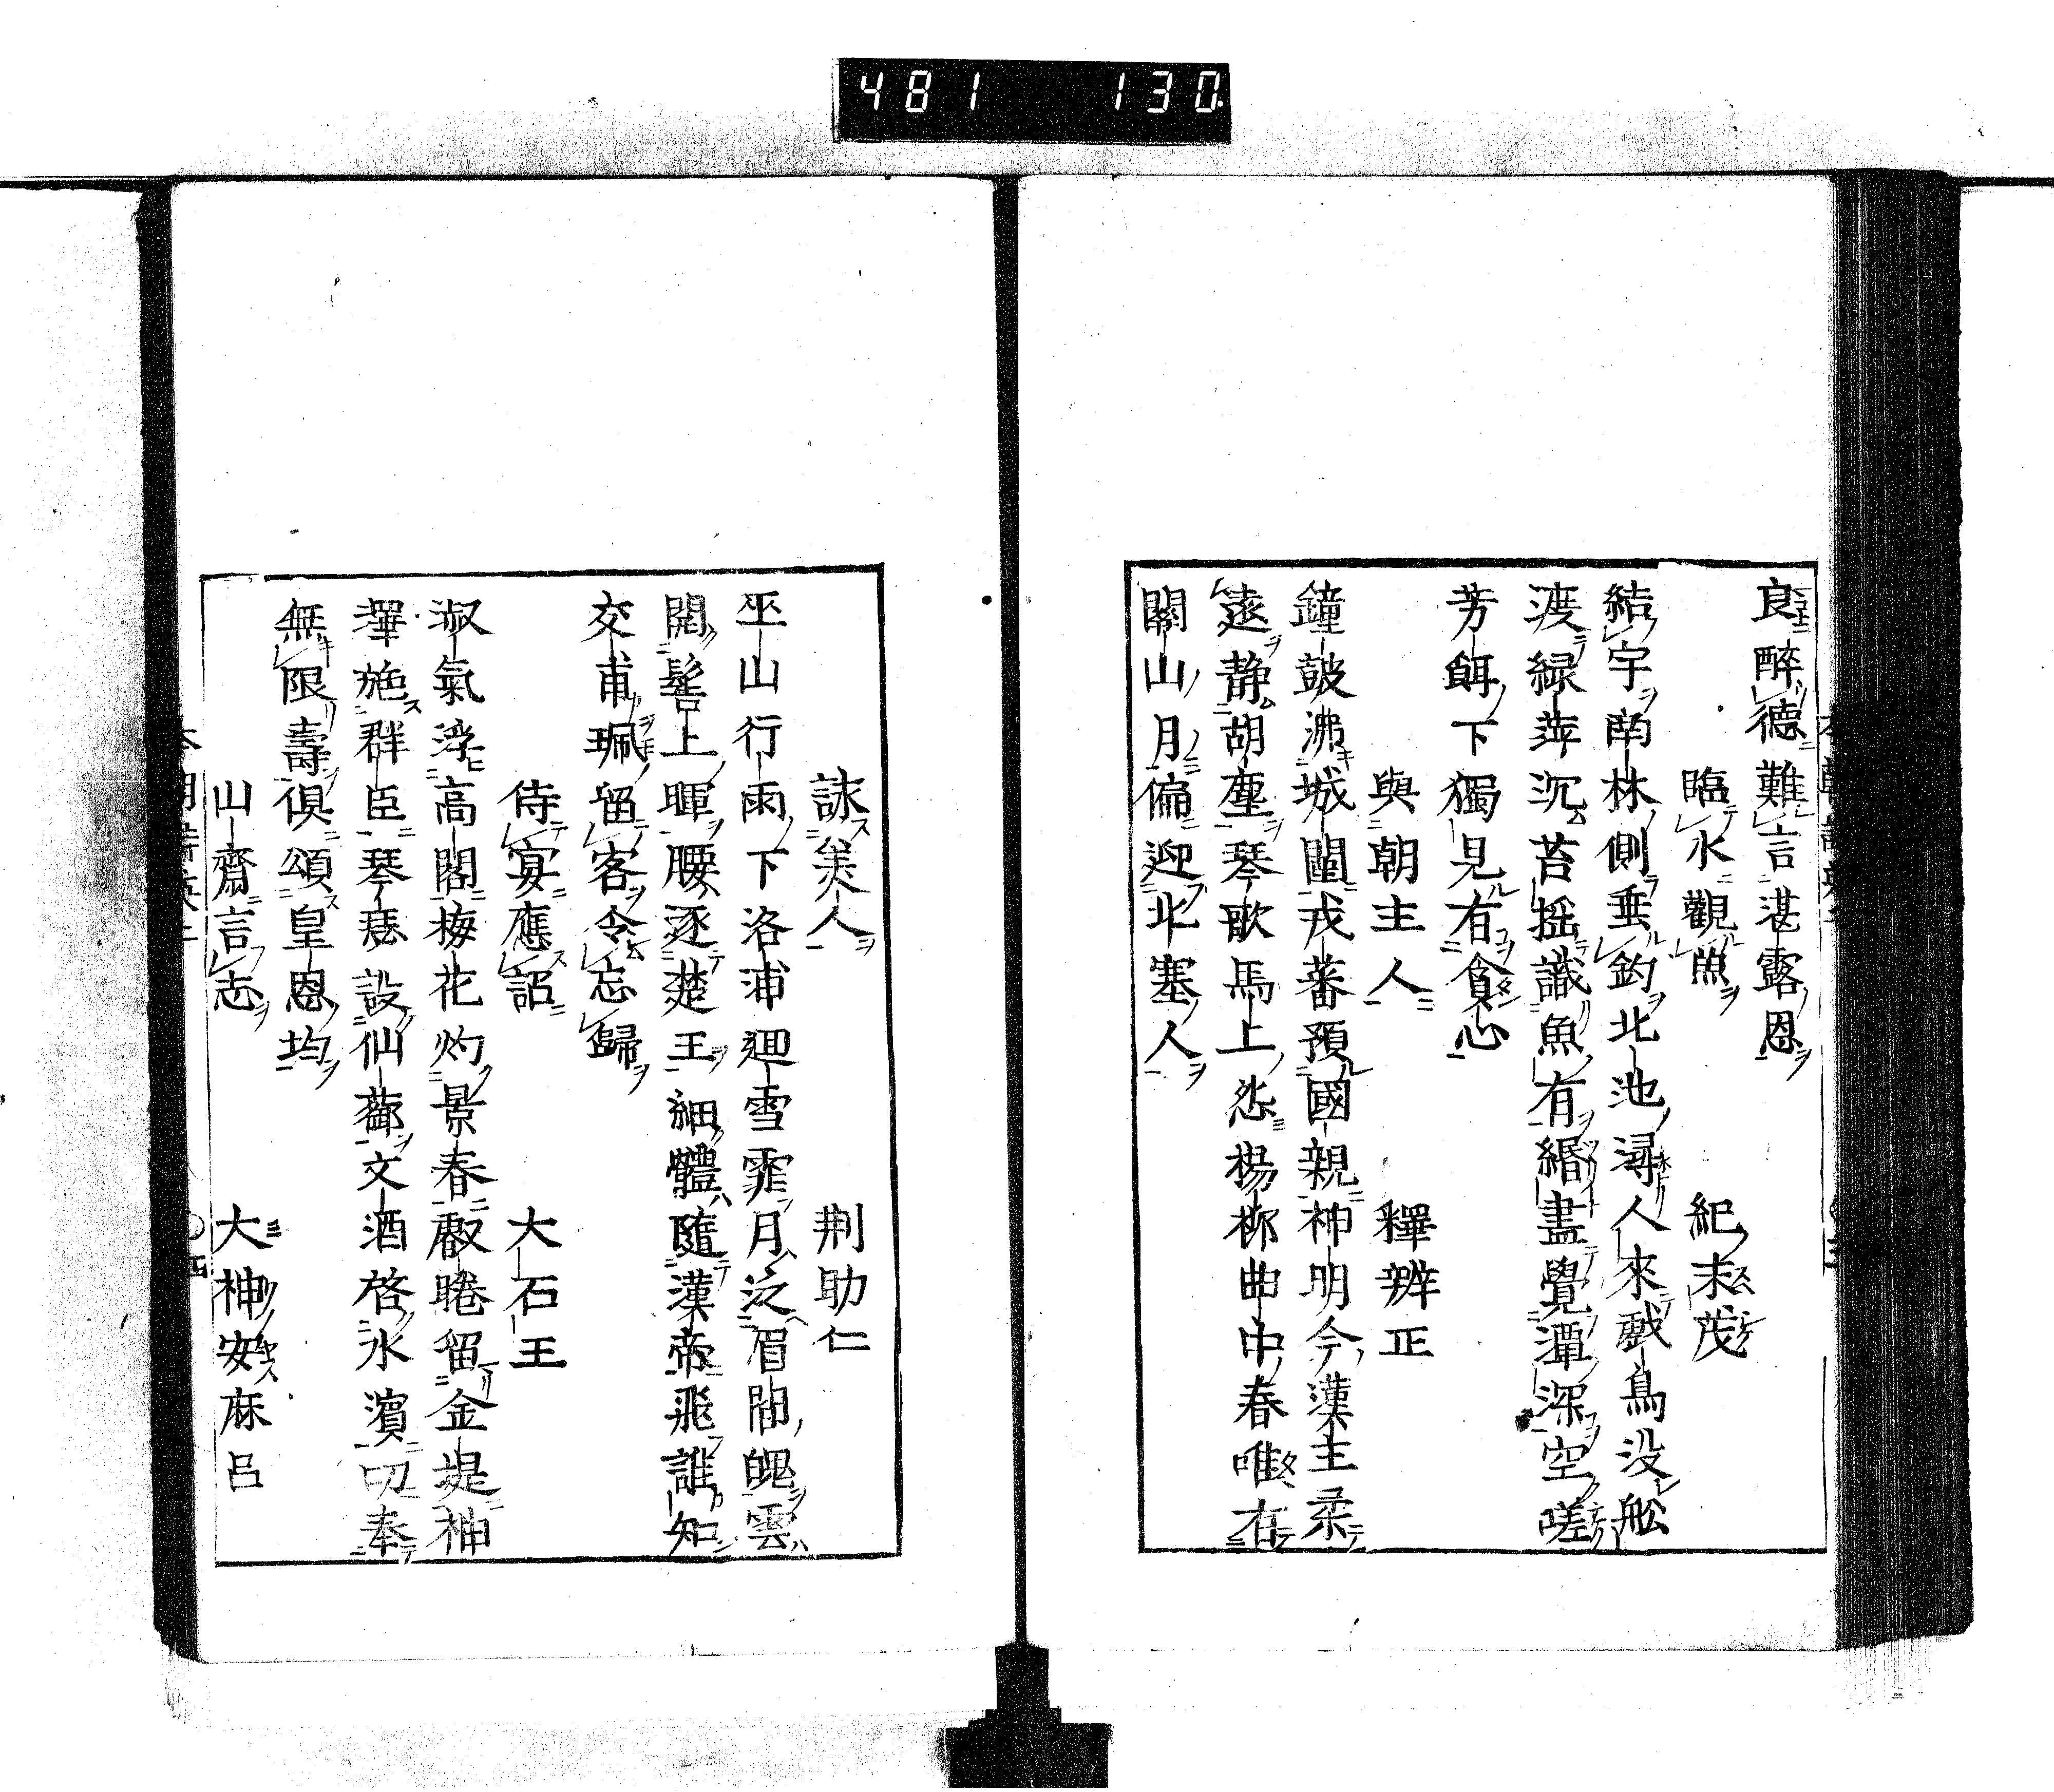 481 130
良醉德難言湛露恩
臨水觀魚 紀末茂
結宇南林側垂釣北池潯人來戲鳥没舩
渡緑萍沉苔搖識魚有緡盡覺潭深空嗟
芳餌下獨見有貪心
與朝主人 釋辨正
鐘皷沸城闉戎蕃預國親神明今漢主柔
遠静胡塵琴歌馬上怨楊栁曲中春唯有
關山月偏迎北塞人
詠美人 荆助仁
巫山行雨下洛浦廻雪霏月泛眉間魄雲
開髻上暉腰逐楚王細體隨漢帝飛誰知
交甫珮留客令忘歸
侍宴應詔 大石王
淑氣浮高閣梅花灼景春叡睠留金堤神
澤施群臣琴瑟設仙蘌文酒啓水濱叨奉
無限壽俱頌皇恩均
山齋言志 大神安麻呂